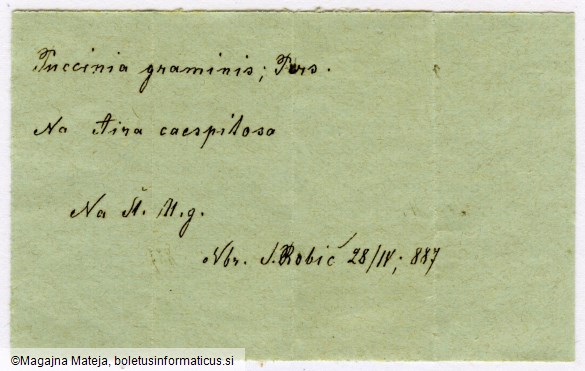 Puccinia graminis; Pers.
Na Aira caespitosa
Na Š. M. g.
Nbr. S. Robič 28/IV; 887
©Magajna Mateja, boletusinformaticus.si